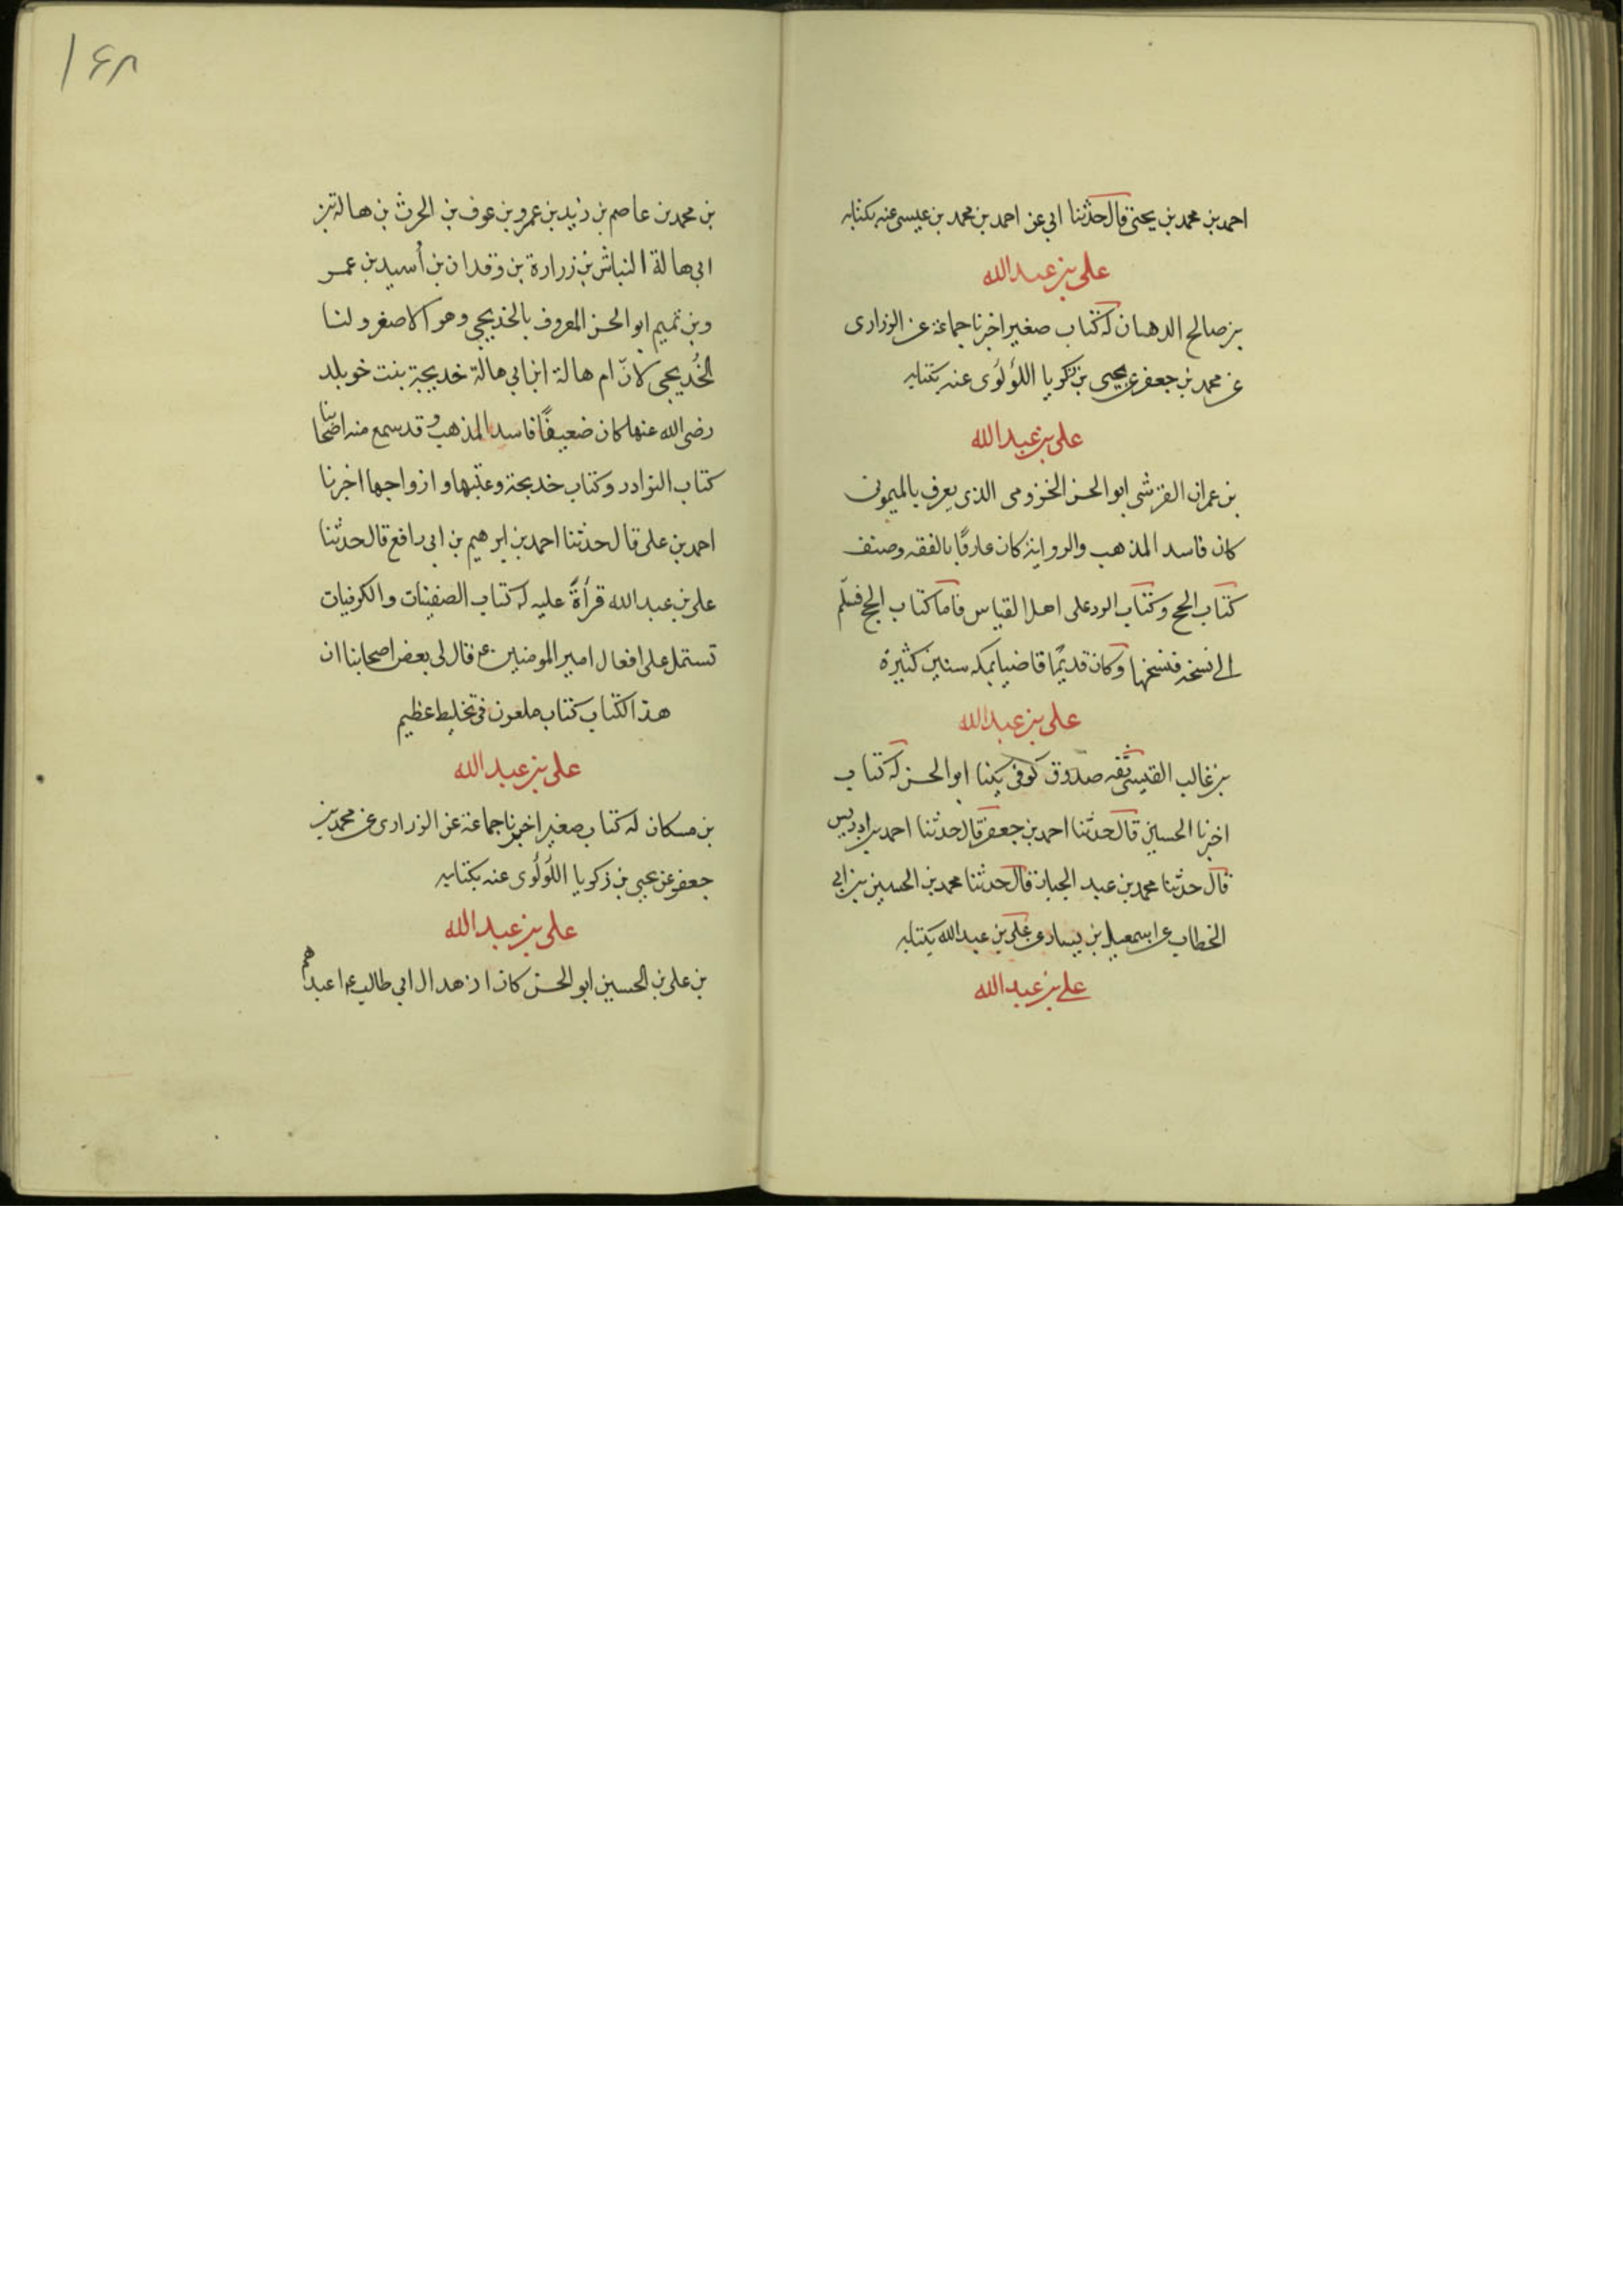 احمد بن محمد بن يحيى قال حدثنا ابي عن احمد بن محمد بن عيسى عنه بكتابه
على بن عبد الله
بن صالح الدهان له كتاب صغير اخبرنا جماعة عن الزرارى
عن محمد بن جعفر عن يحيى بن زكريا اللؤلؤى عنه بكتابه
على بن عبد الله
بن عمران القرشى ابو الحسن المخزومى الذى يعرف بالميمونى
كان فاسد المذهب والرواية كان عارفًا بالفقه وصنف
كتاب الحج وكتاب الرد على اهل القياس فاما كتاب الحج فسلّم
الى نسخة فنسختها وكان قديمًا قاضيا بمكه سنين كثيرة
على بن عبد الله
بن غالب القيسى ثقه صدوق كوفى يكنا ابو الحسن له كتاب
اخبرنا الحسين قال حدثنا احمد بن جعفر قال حدثنا احمد بن ادريس
قال حدثنا محمد بن عبد الجبار قال حدثنا محمد بن الحسين بن ابى
الخطاب عن اسمعيل بن يسار عن على بن عبد الله بكتابه
على بن عبد الله
۱۶۸
بن محمد بن عاصم بن زيد بن عمرو بن عوف بن الحرث بن هالة بن
ابى هالة النباش بن زرارة بن وقدان بن أسيد بن عمـر
وبن تميم ابو الحسن المعروف بالخديجى وهو الاصغر ولنا
الخُديجى لانّ ام هالة ابن ابي هالة خديجة بنت خويلد
رضى الله عنها كان ضعيفًا فاسد المذهب وقد سمع منه اصحابنا
كتاب النوادر وكتاب خديجة وعقبها وازواجها اخبرنا
احمد بن على قال حدثنا احمد بن ابرهيم بن ابى رافع قال حدثنا
على بن عبد الله قرأةً عليه له كتاب الصفينات والكوفيات
تستمل على افعال امير المومنين ع قال لى بعض اصحابنا ان
هذ الكتاب كتاب ملعون فى تخليط عظيم
على بن عبد الله
بن مسكان له كتاب صغير اخبرنا جماعة عن الزرارى عن محمد بن
جعفر عن يحيى بن زكريا اللؤلؤى عنه بكتابه
على بن عبد الله
بن على بن الحسين ابو الحسن كان ازهد ال ابي طالب ع اعبدهم